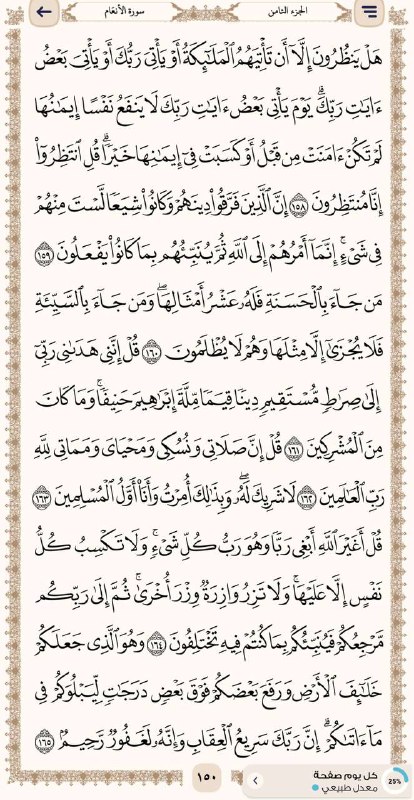 الجزء الثامن
سورة الأنعام
هَلْ يَنظُرُونَ إِلَّآ أَن تَأْتِيَهُمُ ٱلْمَلَـٰٓئِكَةُ أَوْ يَأْتِىَ رَبُّكَ أَوْ يَأْتِىَ بَعْضُ
ءَايَـٰتِ رَبِّكَ ۗ يَوْمَ يَأْتِى بَعْضُ ءَايَـٰتِ رَبِّكَ لَا يَنفَعُ نَفْسًا إِيمَـٰنُهَا
لَمْ تَكُنْ ءَامَنَتْ مِن قَبْلُ أَوْ كَسَبَتْ فِىٓ إِيمَـٰنِهَا خَيْرًا ۗ قُلِ ٱنتَظِرُوٓا۟
إِنَّا مُنتَظِرُونَ ١٥٨ إِنَّ ٱلَّذِينَ فَرَّقُوا۟ دِينَهُمْ وَكَانُوا۟ شِيَعًا لَّسْتَ مِنْهُمْ
فِى شَىْءٍ ۚ إِنَّمَآ أَمْرُهُمْ إِلَى ٱللَّهِ ثُمَّ يُنَبِّئُهُم بِمَا كَانُوا۟ يَفْعَلُونَ ١٥٩
مَن جَآءَ بِٱلْحَسَنَةِ فَلَهُۥ عَشْرُ أَمْثَالِهَا ۖ وَمَن جَآءَ بِٱلسَّيِّئَةِ
فَلَا يُجْزَىٰٓ إِلَّا مِثْلَهَا وَهُمْ لَا يُظْلَمُونَ ١٦٠ قُلْ إِنَّنِى هَدَىٰنِى رَبِّىٓ
إِلَىٰ صِرَٰطٍ مُّسْتَقِيمٍ دِينًا قِيَمًا مِّلَّةَ إِبْرَٰهِيمَ حَنِيفًا ۚ وَمَا كَانَ
مِنَ ٱلْمُشْرِكِينَ ١٦١ قُلْ إِنَّ صَلَاتِى وَنُسُكِى وَمَحْيَاىَ وَمَمَاتِى لِلَّهِ
رَبِّ ٱلْعَـٰلَمِينَ ١٦٢ لَا شَرِيكَ لَهُۥ ۖ وَبِذَٰلِكَ أُمِرْتُ وَأَنَا۠ أَوَّلُ ٱلْمُسْلِمِينَ ١٦٣
قُلْ أَغَيْرَ ٱللَّهِ أَبْغِى رَبًّا وَهُوَ رَبُّ كُلِّ شَىْءٍ ۚ وَلَا تَكْسِبُ كُلُّ
نَفْسٍ إِلَّا عَلَيْهَا ۚ وَلَا تَزِرُ وَازِرَةٌ وِزْرَ أُخْرَىٰ ۚ ثُمَّ إِلَىٰ رَبِّكُم
مَّرْجِعُكُمْ فَيُنَبِّئُكُم بِمَا كُنتُمْ فِيهِ تَخْتَلِفُونَ ١٦٤ وَهُوَ ٱلَّذِى جَعَلَكُمْ
خَلَـٰٓئِفَ ٱلْأَرْضِ وَرَفَعَ بَعْضَكُمْ فَوْقَ بَعْضٍ دَرَجَـٰتٍ لِّيَبْلُوَكُمْ فِى
مَآ ءَاتَىٰكُمْ ۗ إِنَّ رَبَّكَ سَرِيعُ ٱلْعِقَابِ وَإِنَّهُۥ لَغَفُورٌ رَّحِيمٌۢ ١٦٥
١٥٠
كل يوم صفحة
معدل طبيعي
25%